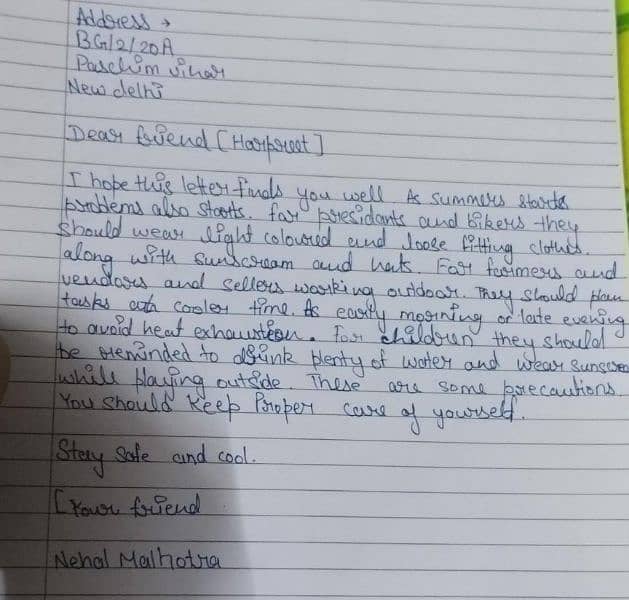 Address →
BG/2/20A
Paschim vihar
New delhi
Dear friend [Harpreet]
I hope this letter finds you well. As summers starts
problems also starts. for presidants and bikers they
should wear light coloured and loose fitting clothes.
along with sunscream and hats. For farmers and
vendors and sellers working outdoor. They should plan
tasks at cooler time. As early morning or late evening
to avoid heat exhaustion. For children they should
be reminded to drink plenty of water and wear sunscree
while playing outside. These are some precautions.
You should keep Proper care of yourself.
Stay safe and cool.
[Your friend
Nehal Malhotra